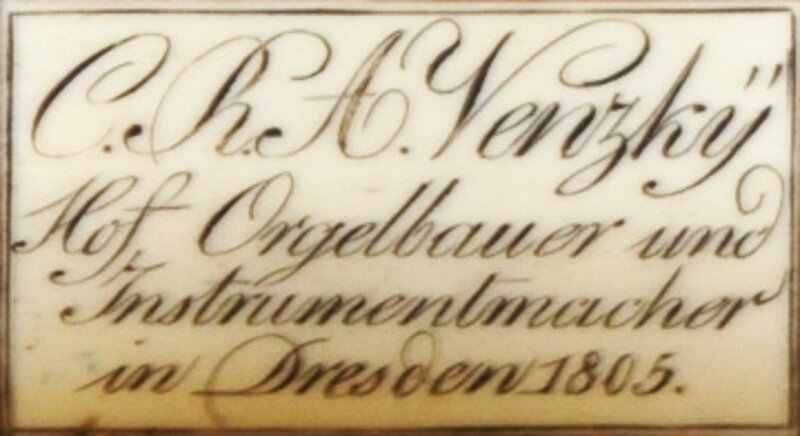 C. R. A. Venzkÿ
Hof Orgelbauer und
Instrumentmacher
in Dresden 1805.